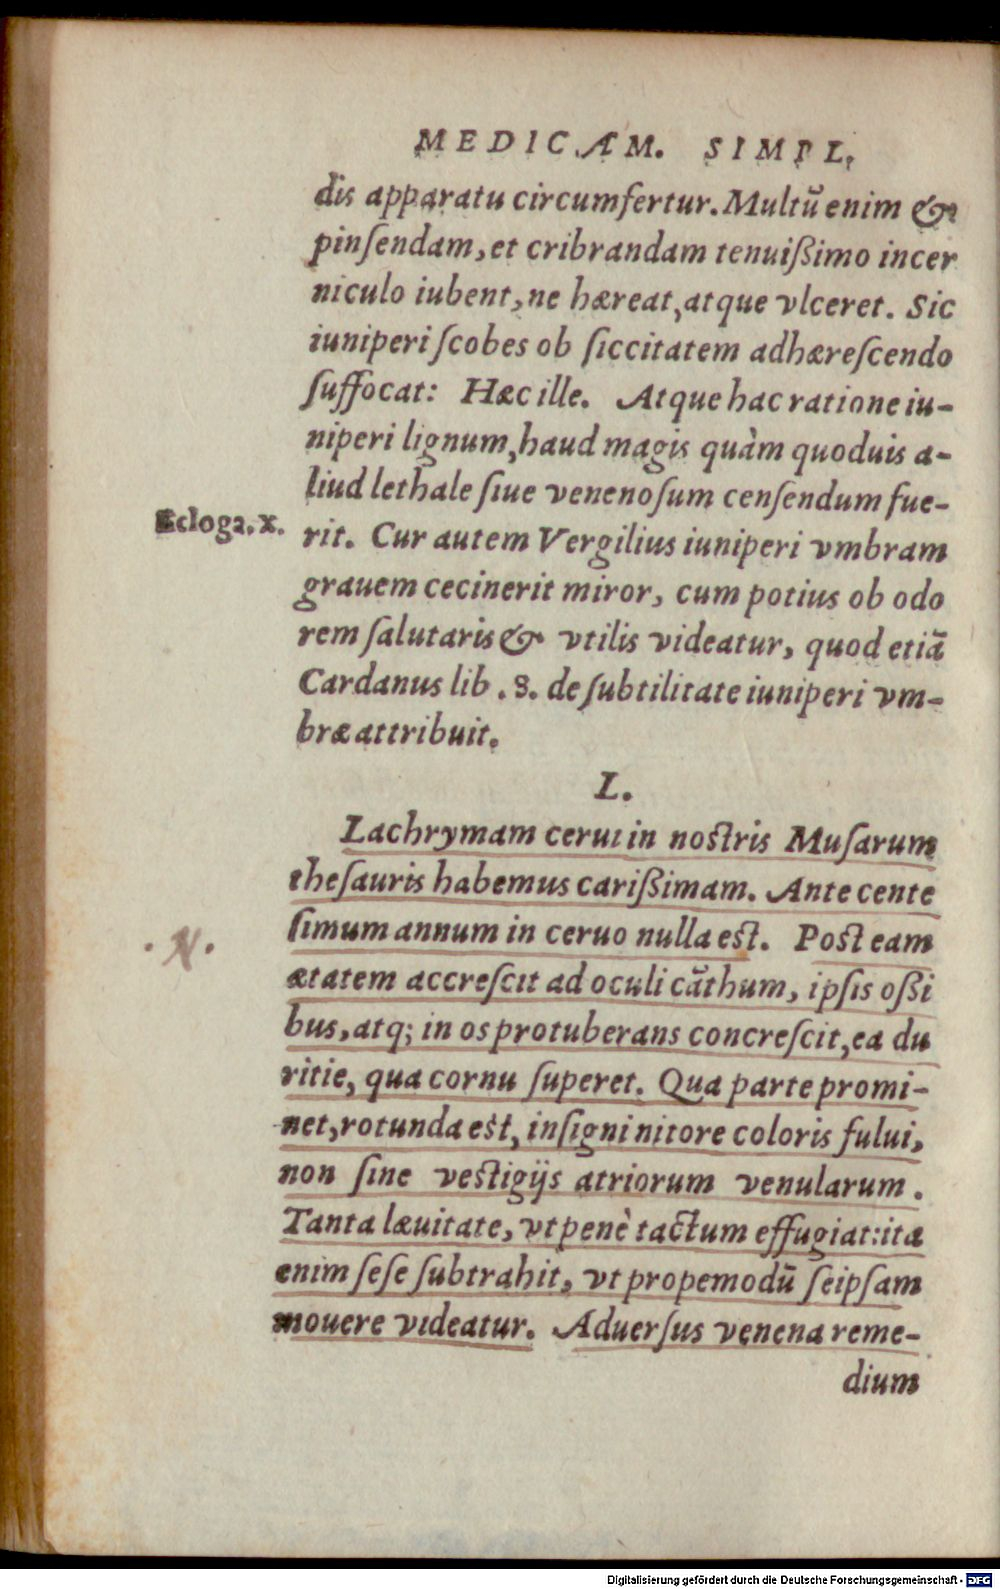 MEDICAM. SIMPL.
dis apparatu circumfertur. Multũ enim &
pinſendam, et cribrandam tenuißimo incer
niculo iubent, ne hæreat, atque vlceret. Sic
iuniperi ſcobes ob ſiccitatem adhæreſcendo
ſuffocat: Hæc ille. Atque hac ratione iu-
niperi lignum, haud magis quàm quoduis a-
liud lethale ſiue venenoſum cenſendum fue-
Ecloga. x.
rit. Cur autem Vergilius iuniperi vmbram
grauem cecinerit miror, cum potius ob odo
rem ſalutaris & vtilis videatur, quod etiã
Cardanus lib. 8. de ſubtilitate iuniperi vm-
bræ attribuit.
L.
Lachrymam cerui in noſtris Muſarum
theſauris habemus carißimam. Ante cente
ſimum annum in ceruo nulla eſt. Poſt eam
ætatem accreſcit ad oculi cãthum, ipſis oßi
bus, atq; in os protuberans concreſcit, ea du
ritie, qua cornu ſuperet. Qua parte promi-
net, rotunda eſt, inſigni nitore coloris fului,
non ſine veſtigijs atriorum venularum.
Tanta læuitate, vt penè tactum effugiat: ita
enim ſeſe ſubtrahit, vt propemodũ ſeipſam
mouere videatur. Aduerſus venena reme-
dium
Digitalisierung gefördert durch die Deutsche Forschungsgemeinschaft - DFG